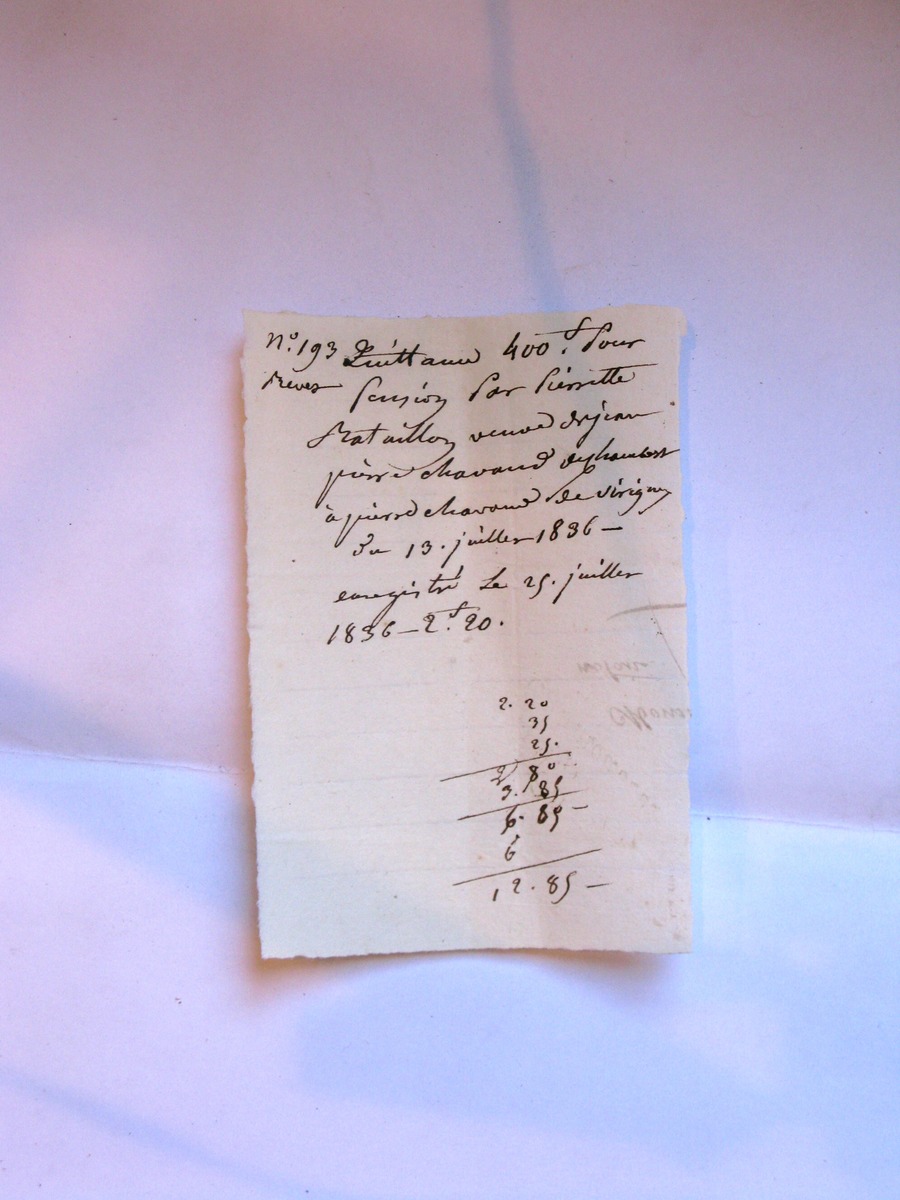 N.º 193 Quittance 400.f Pour
Pension Par Pierrette
Bataillon veuve de jean
pierre chavand
à pierre chavand de Virigny
du 13. juillet 1836 —
enregistré Le 25. juillet
1836 — 2.f 20.
notaire
2. 20
35
25.
2 80
3. 85
6. 85 —
6
12. 85 —